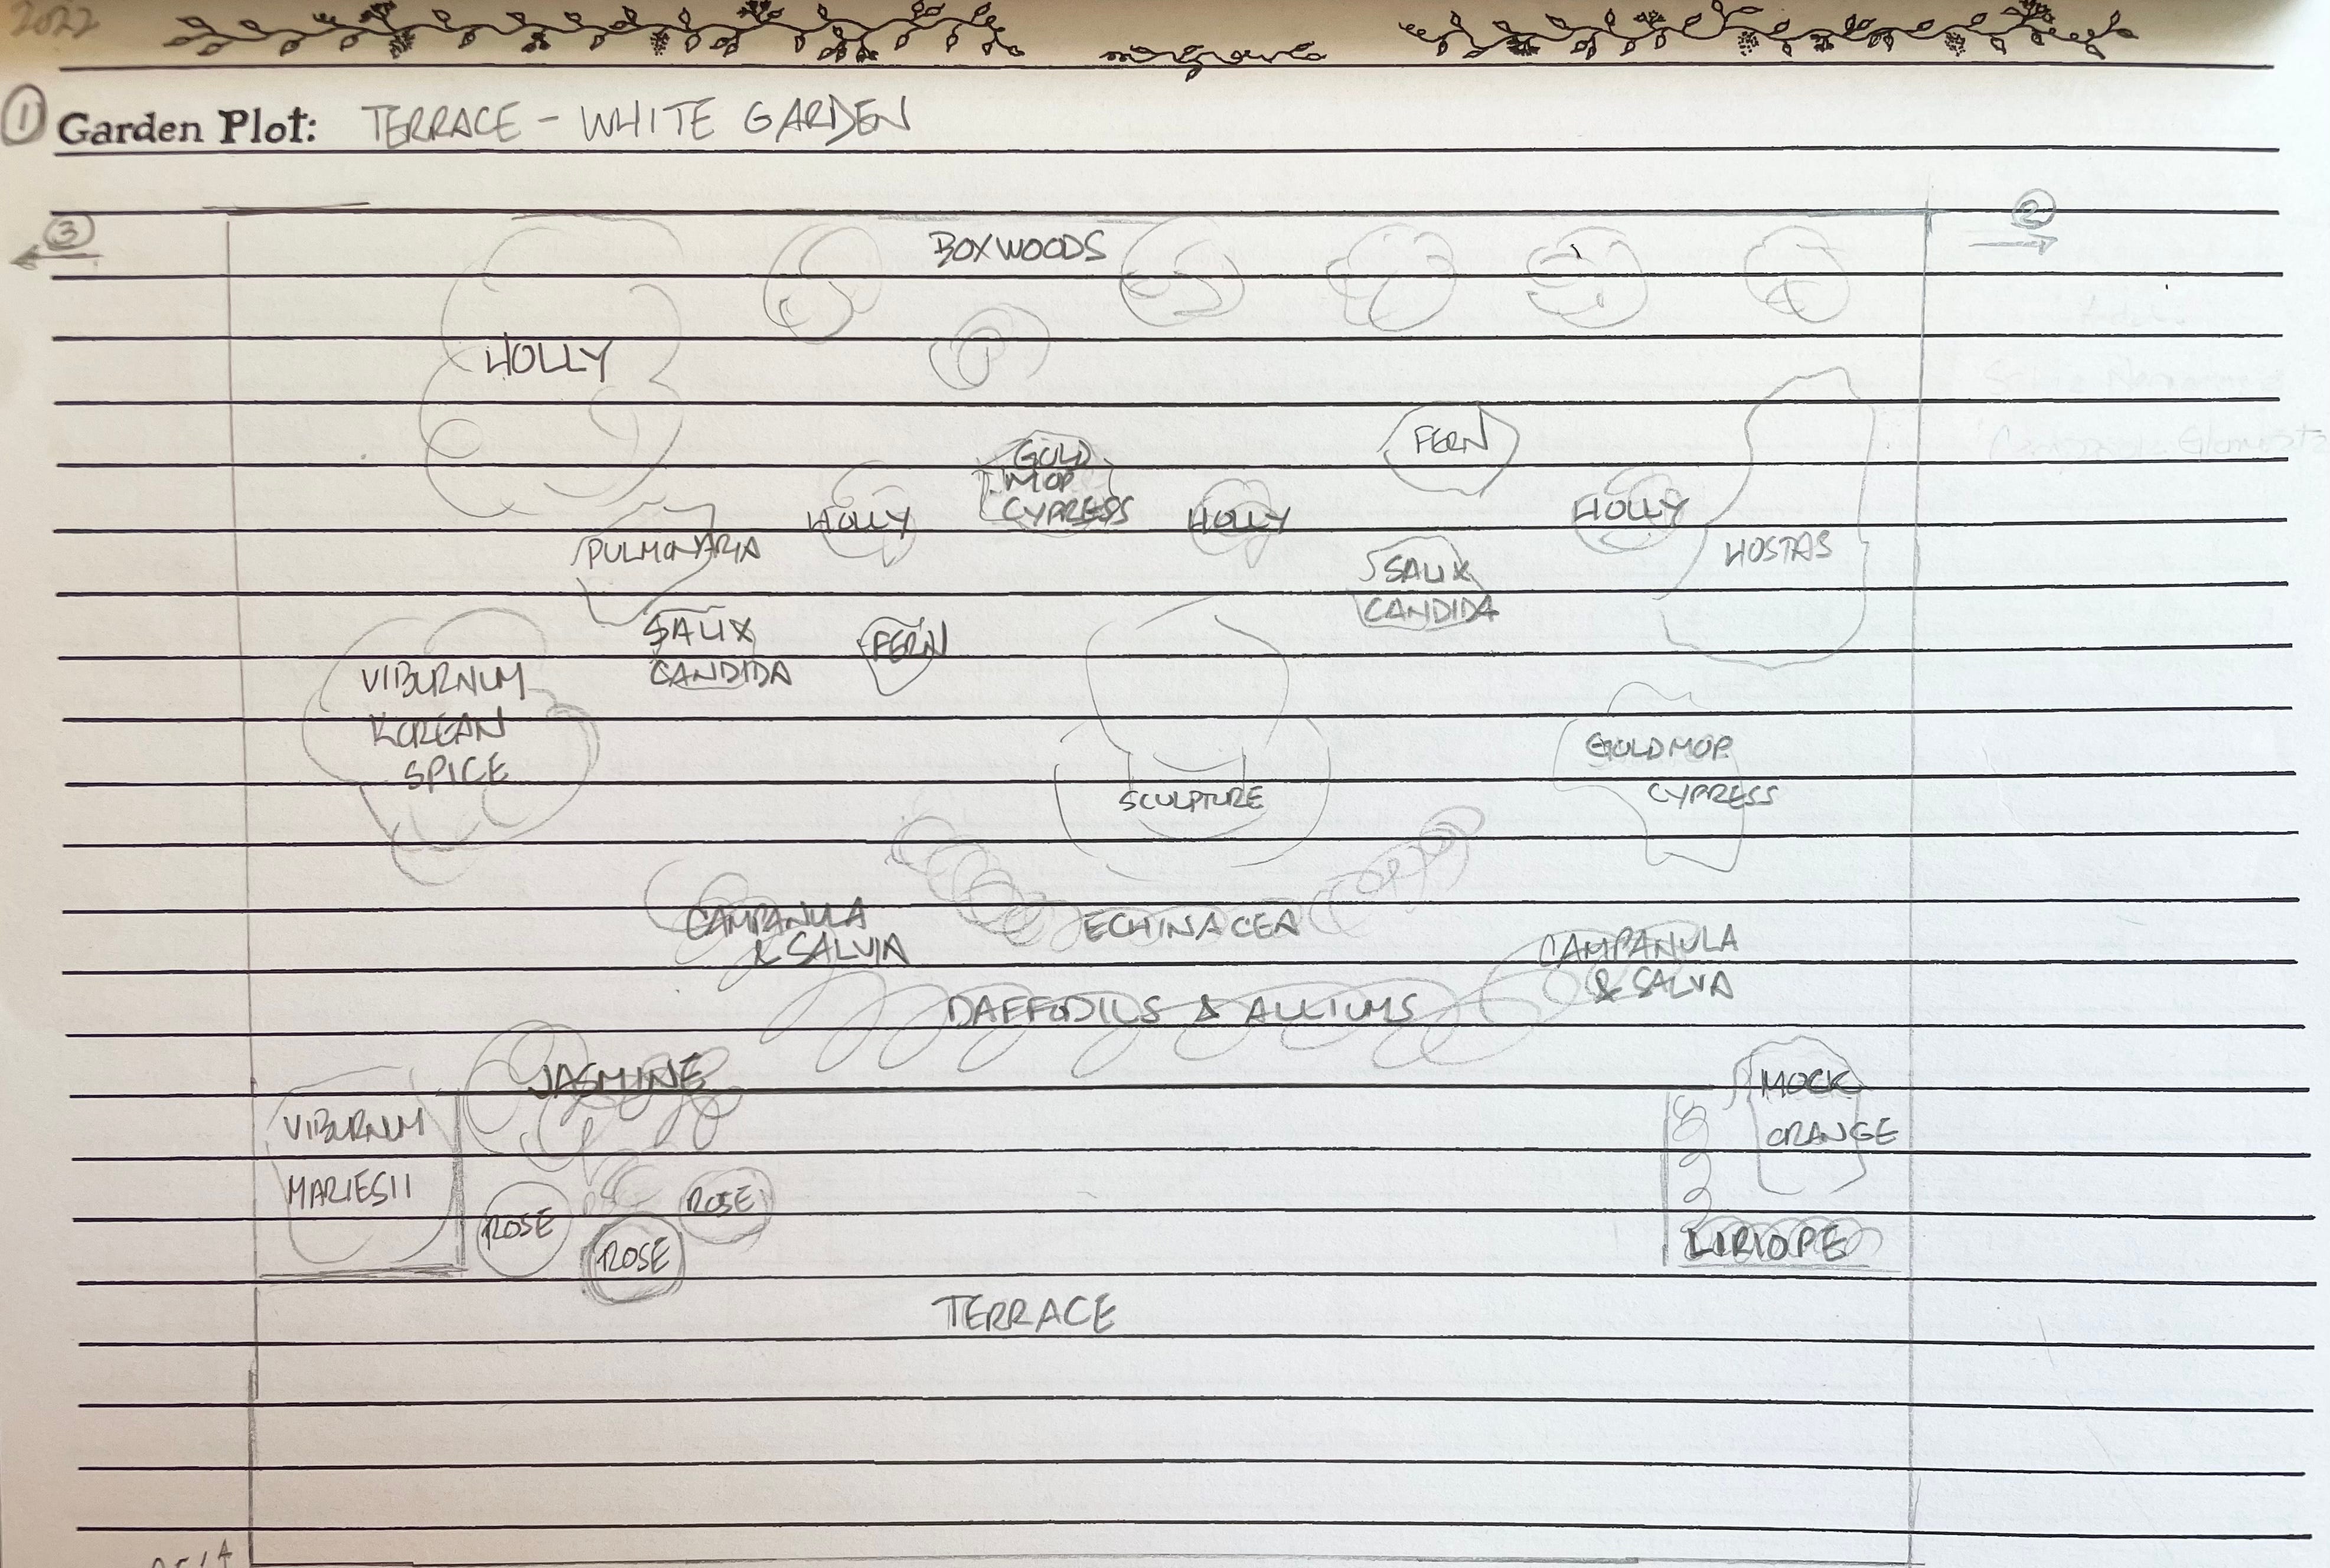 2022
1 Garden Plot: TERRACE - WHITE GARDEN
3
2
BOXWOODS
HOLLY
FERN
GOLD
MOP
CYPRESS
HOLLY
HOLLY
HOLLY
HOSTAS
PULMONARIA
SALIX
CANDIDA
SALIX
CANDIDA
FERN
VIBURNUM
KOREAN
SPICE
SCULPTURE
GOLD MOP
CYPRESS
CAMPANULA
& SALVIA
ECHINACEA
CAMPANULA
& SALVA
DAFFODILS & ALLIUMS
JASMINE
MOCK
ORANGE
VIBURNUM
MARIESII
ROSE
ROSE
ROSE
LIRIOPE
TERRACE